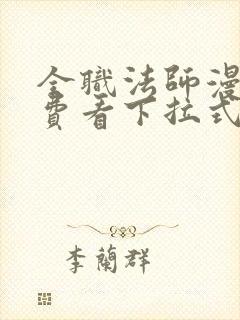 全職法師漫
費看下拉式
李蘭群